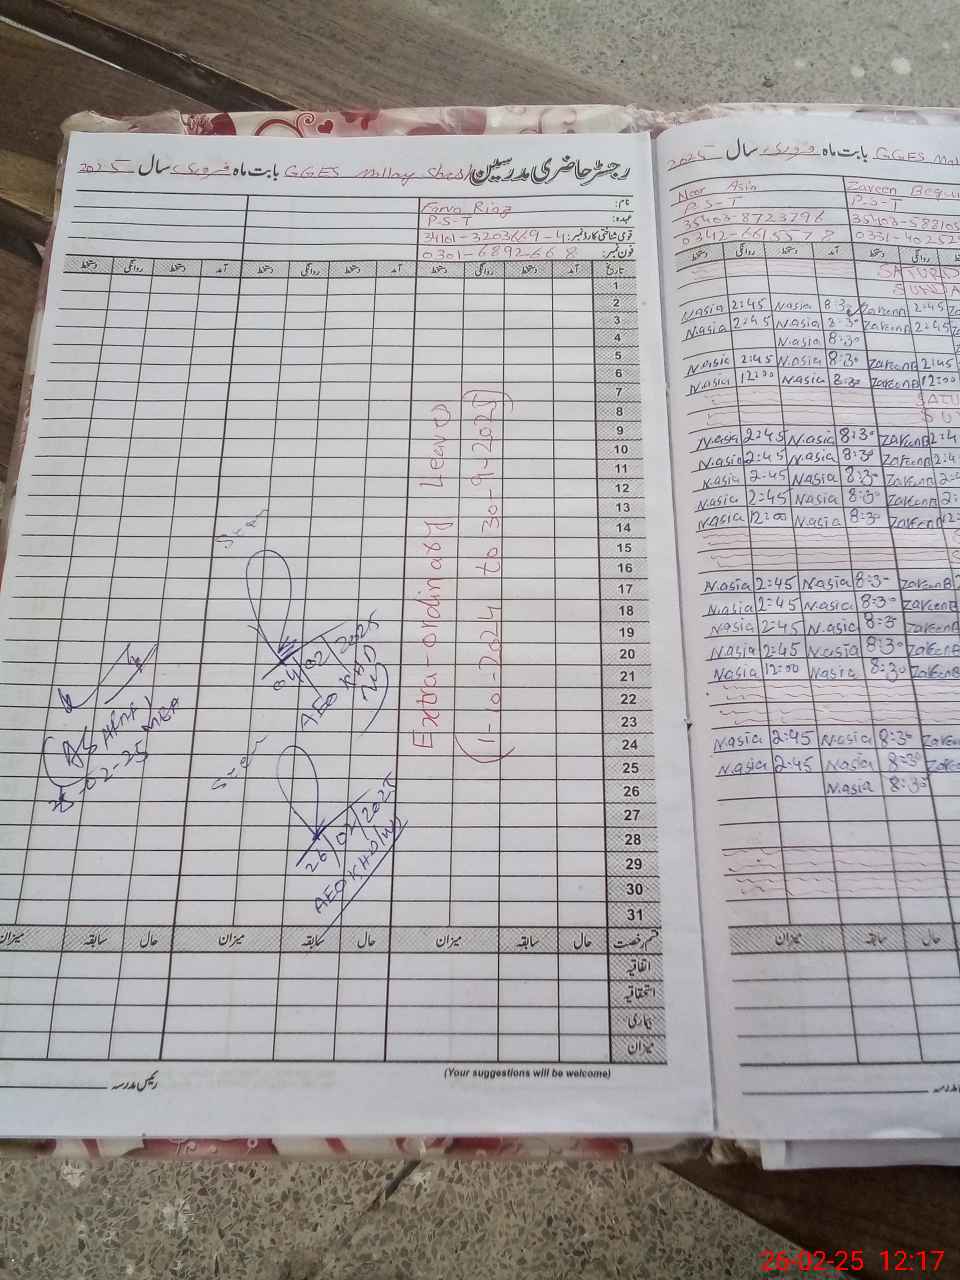 رجسٹر حاضری مدرسین GGES بابت ماہ فروری سال 2025
نام: Farva Ring
عہدہ: P-S-T
قومی شناختی کارڈ نمبر: 34101-3203669-4
فون نمبر: 0301-6892668
تاریخ آمد دستخط روانگی دستخط آمد دستخط روانگی دستخط آمد دستخط روانگی دستخط
1
2
3
4
5
6
7
8
9
10
11
12
13
14
15
16
17
18
19
20
21
22
23
24
25
26
27
28
29
30
31
Extra-ordinary Leaves
(1-10-2024 to 30-91-2025)
04/02/2025
AEO KHD
26/02/2025
AEO KHD
MEA
25-02-25
قسم رخصت حال سابقہ میزان حال سابقہ میزان حال سابقہ میزان
اتفاقیہ
استحقاقیہ
بیماری
میزان
(Your suggestions will be welcome)
رئیس مدرسہ
2025 سال فروری بابت ماہ GGES
Noor Asia
P-S-T
35403-8723796
0342-6615578
Zareen Begu
P-S-T
35403-588105
0331-402529
دستخط روانگی دستخط آمد دستخط روانگی
SATURD
SUNDA
N.asia 2:45 N.asia 8:30 ZareenB 2:45
N.asia 2:45 N.asia 8:30 ZareenB 2:45
N.asia 8:30
N.asia 2:45 N.asia 8:30 ZareenB 2:45
N.asia 12:00 N.asia 8:30 ZareenB 12:00
SATU
SU
N.asia 2:45 N.asia 8:30 ZareenB 2:4
N.asia 2:45 N.asia 8:30 ZareenB 2:4
N.asia 2:45 N.asia 8:30 ZareenB 2:4
N.asia 2:45 N.asia 8:30 ZareenB 2:
N.asia 12:00 N.asia 8:30 ZareenB 12:
N.asia 2:45 N.asia 8:30 ZareenB
N.asia 2:45 N.asia 8:30 ZareenB
N.asia 2:45 N.asia 8:30 ZareenB
N.asia 2:45 N.asia 8:30 ZareenB
N.asia 12:00 N.asia 8:30 ZareenB
N.asia 2:45 N.asia 8:30 Zaree
N.asia 2:45 N.asia 8:30 Zaree
N.asia 8:30
میزان سابقہ حال
رئیس مدرسہ
26-02-25 12:17